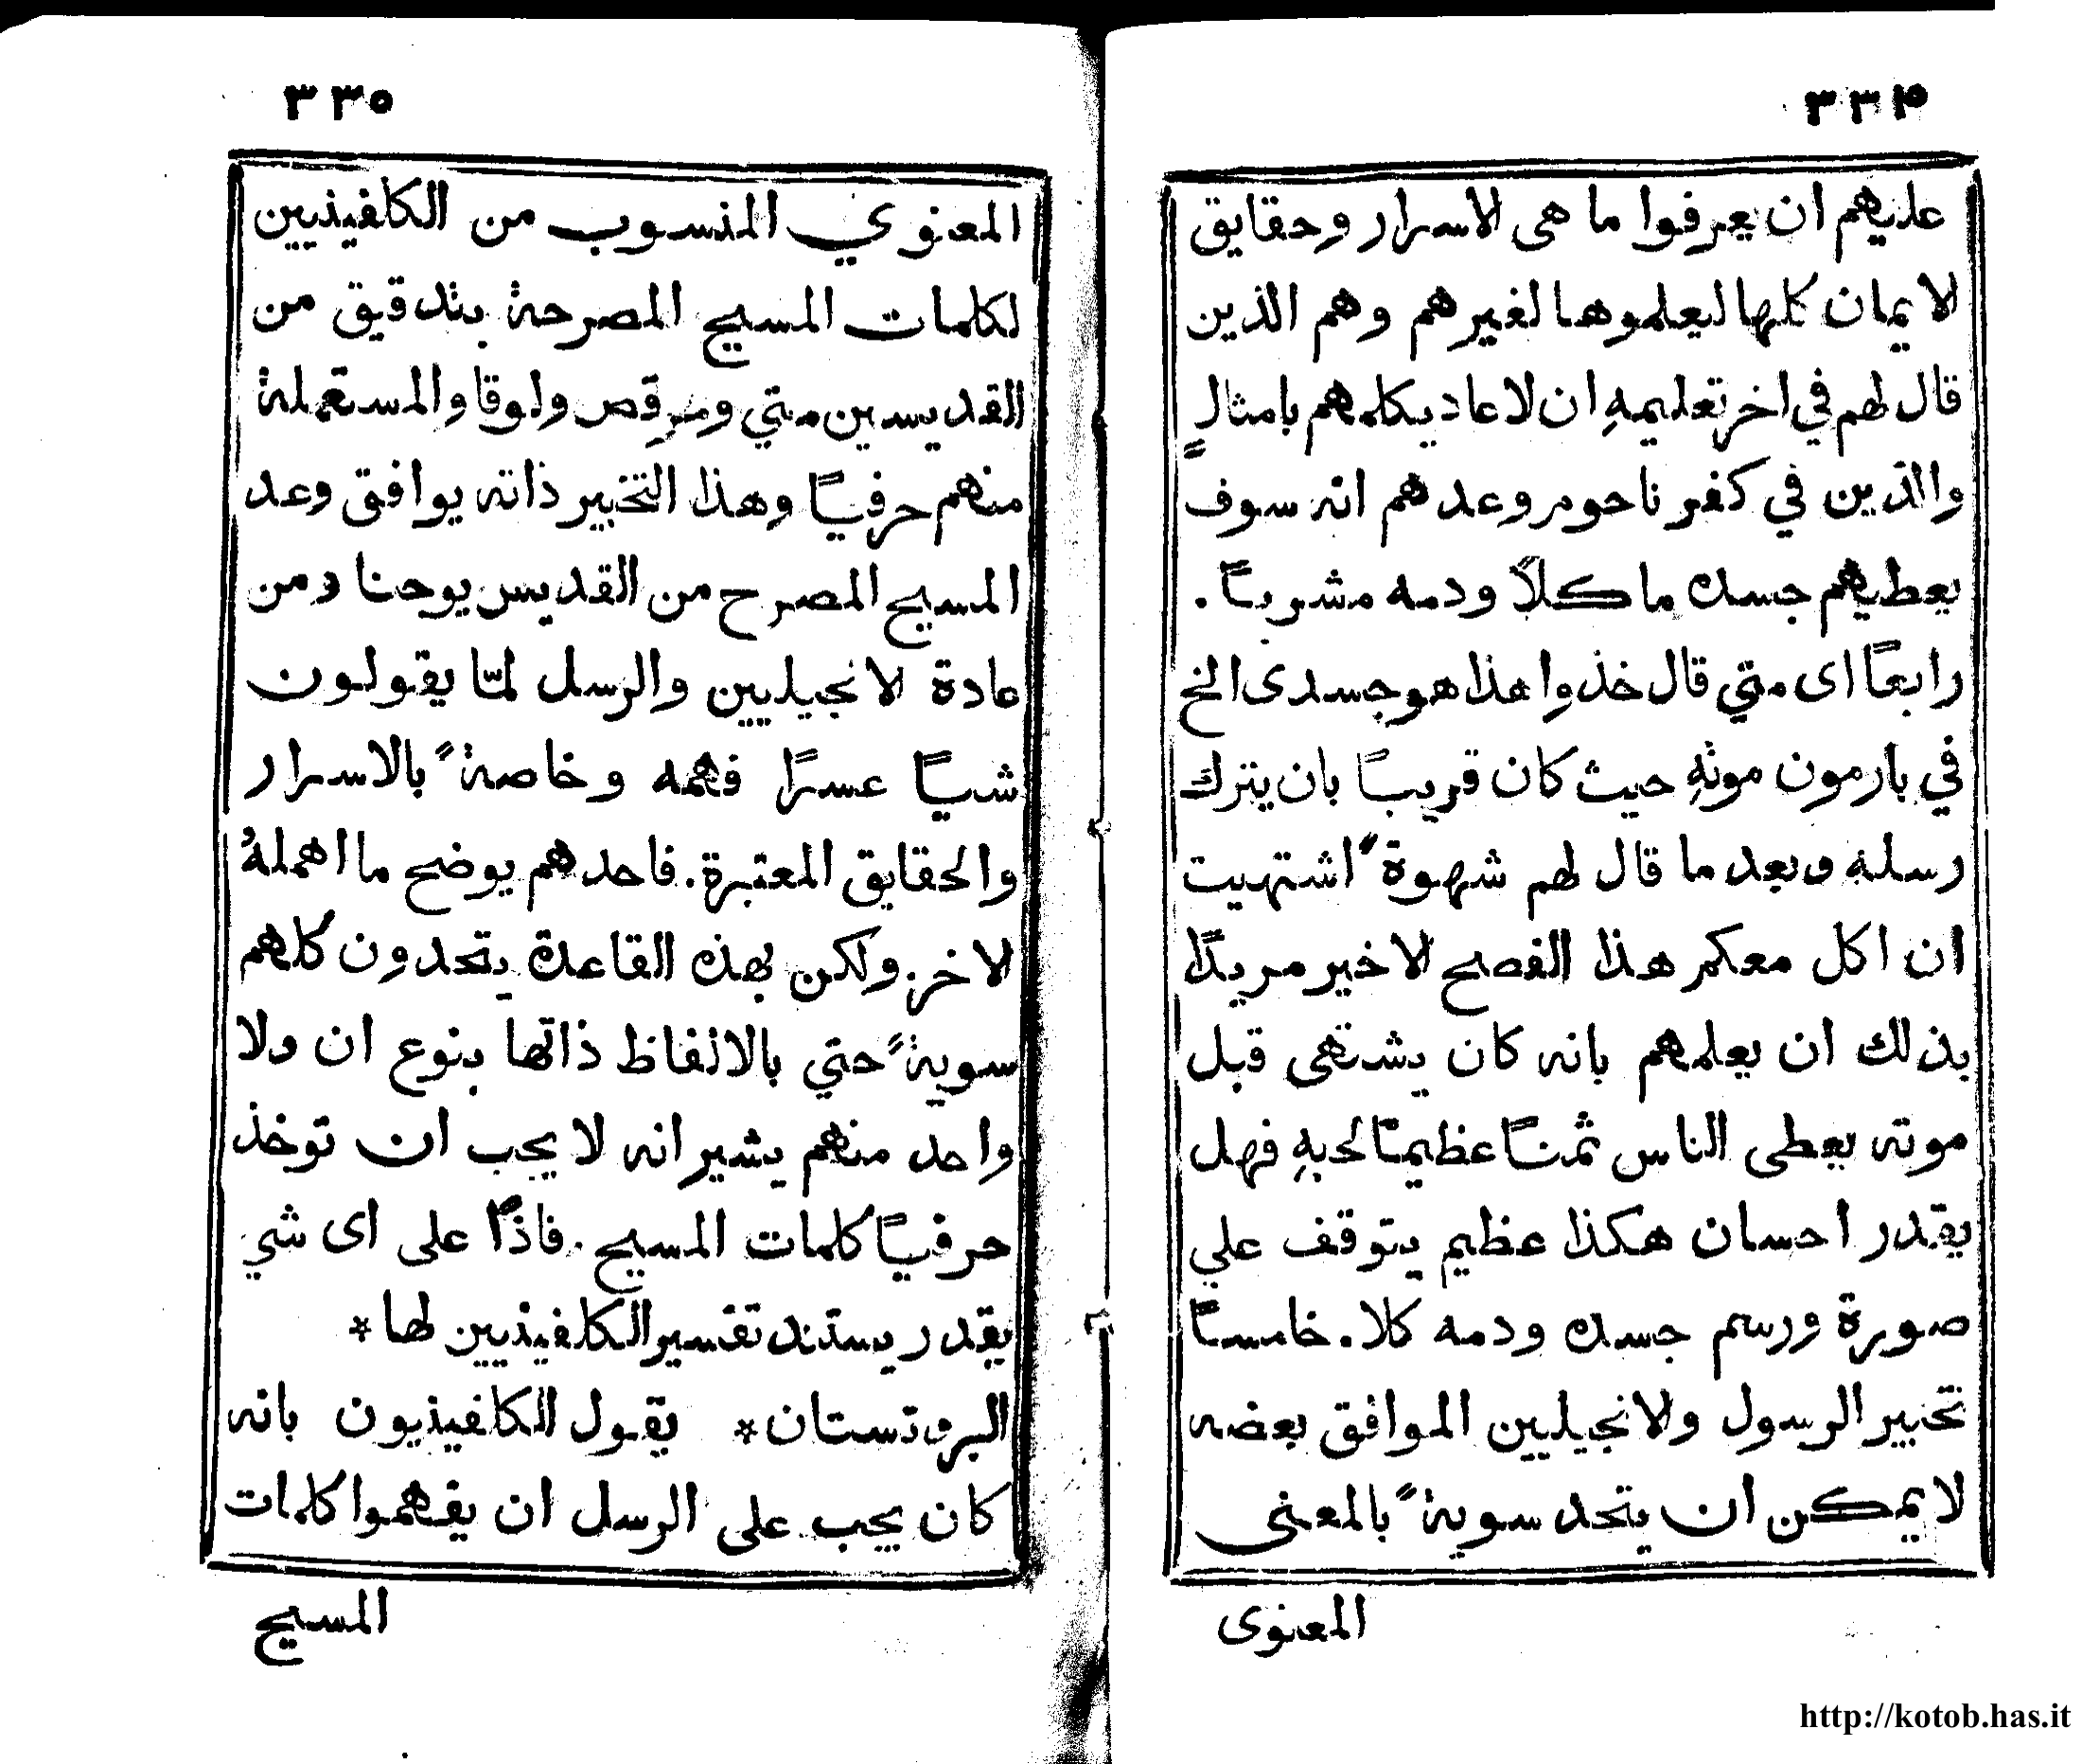 ٣٣٤
عليهم ان يعرفوا ما هى لاسرار وحقايق
لايمان كلها ليعلموها لغيرهم وهم الذين
قال لهم في اخر تعليمهِ ان لا عاد يكلمهم بامثالٍ
والذين في كفر ناحوم وعدهم انه سوف
يعطيهم جسده ماكلاً ودمه مشربـاً .
رابعاً اى متي قال خذوا هذا هو جسدى الخ
في بارمون موتهِ حيث كان قريبـاً بان يترك
رسله وبعد ما قال لهم شهوةً اشتهيت
ان اكل معكم هذا الفصح لاخير مريدًا
بذلك ان يعلمهم بانه كان يشتهى قبل
موته يعطى الناس ثمنـاً عظيمـًا لحبهِ فهل
يقدر احسان هكذا عظيم يتوقف علي
صورة ورسم جسده ودمه كلا. خامسـاً
تخبير الرسول ولانجيليين الموافق بعضه
لا يمكن ان يتحد سويةً بالمعنى
المعنوى
٣٣٥
المعنوي المنسوب من الكلفينيين
لكلمات المسيح المصرحة بتدقيق من
القديسين متي ومرقص ولوقا والمستعملة
منهم حرفيـاً وهذا التخبير ذاته يوافق وعد
المسيح المصرح من القديس يوحنا ومن
عادة لانجيليين والرسل لمّا يقولون
شيـاً عسرًا فهمه وخاصةً بالاسرار
والحقايق المعتبرة. فاحدهم يوضح ما اهملهُ
لاخر. ولكن بهذه القاعدة يتحدون كلهم
سويةً حتي بالالفاظ ذاتها بنوع ان ولا
واحد منهم يشير انه لا يجب ان توخذ
حرفيـاً كلمات المسيح . فاذًا على اى شي
يقدر يستند تفسير الكلفينيين لها *
البروتستان * يقول الكلفينيون بانه
كان يجب على الرسل ان يفهموا كلمات
المسيح
http://kotob.has.it